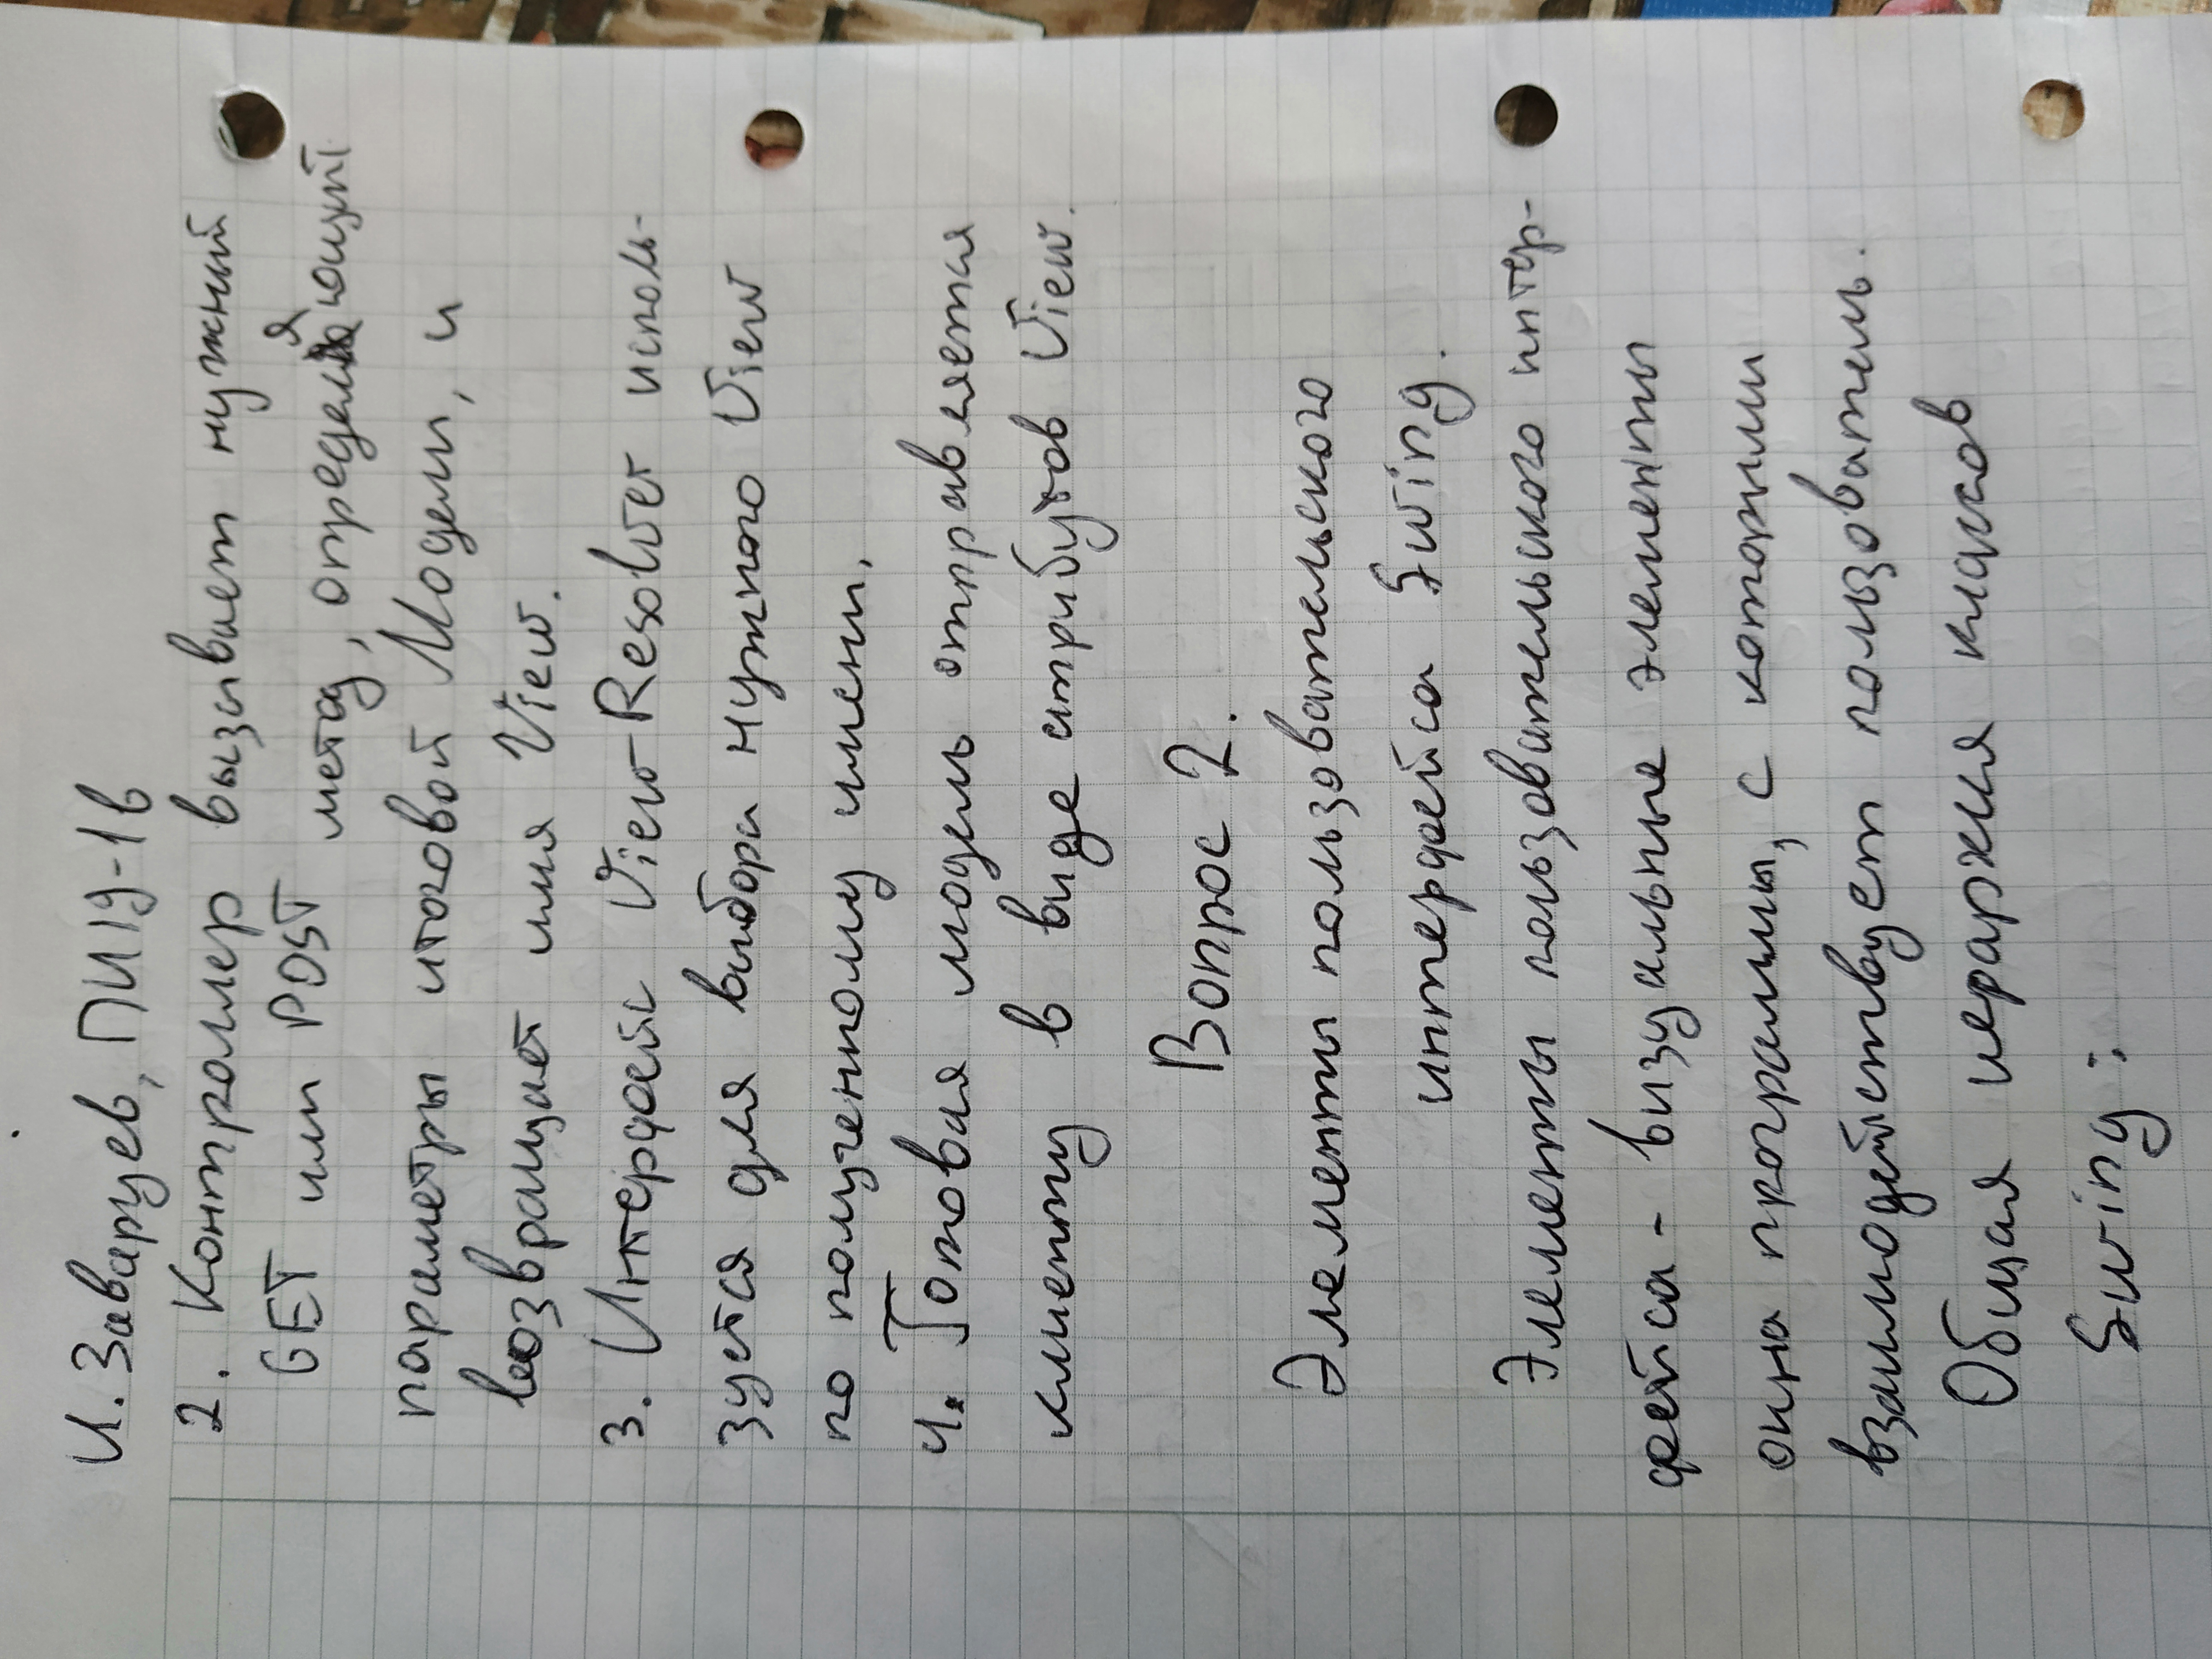 И. Заварцев, ПИ19-1в
2. Контроллер вызывает нужный
GET или POST метод, определяющий
параметры итоговой Модели, и
возвращает имя View.
3. Интерфейс View Resolver исполь-
зуется для выбора нужного View
по полученному имени.
4. Готовая модель отправляется
клиенту в виде атрибутов View.
Вопрос 2.
Элементы пользовательского
интерфейса Swing.
Элементы пользовательского интер-
фейса - визуальные элементы
окна программы, с которыми
взаимодействует пользователь.
Общая иерархия классов
Swing: